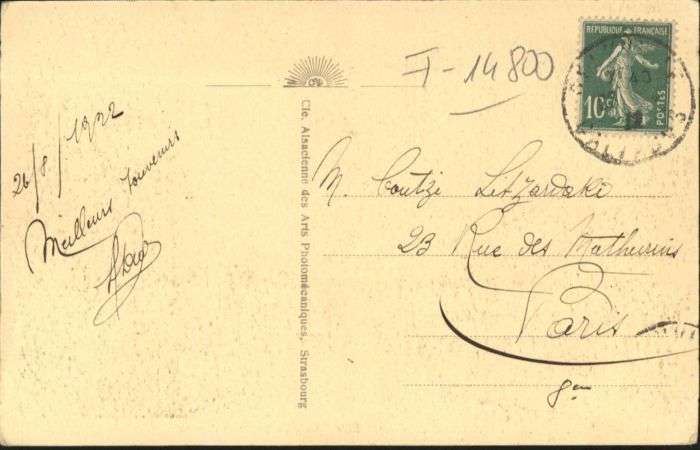 26/8/1922
Meilleurs souvenirs
Cie. Alsacienne des Arts Photomécaniques, Strasbourg
I-14800
REPUBLIQUE FRANÇAISE
10c
POSTES
M. Coutzi Litzardaki
23 Rue des Mathurins
Paris